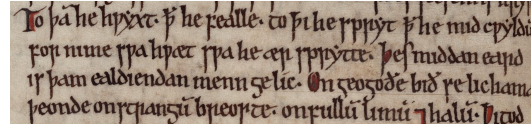 To þā he ƿyxt. ꝥ he fealle. to þi he spryt ꝥ he mid cƿyldū
for nime sƿa hƿæt sƿa he ær sprytte. Þes middan eard
is þam ealdiendan menn gelic. On geogoðe bið se lichama
þeonde on strangū breoste. on fullū limū ⁊ halū. Ƿitod